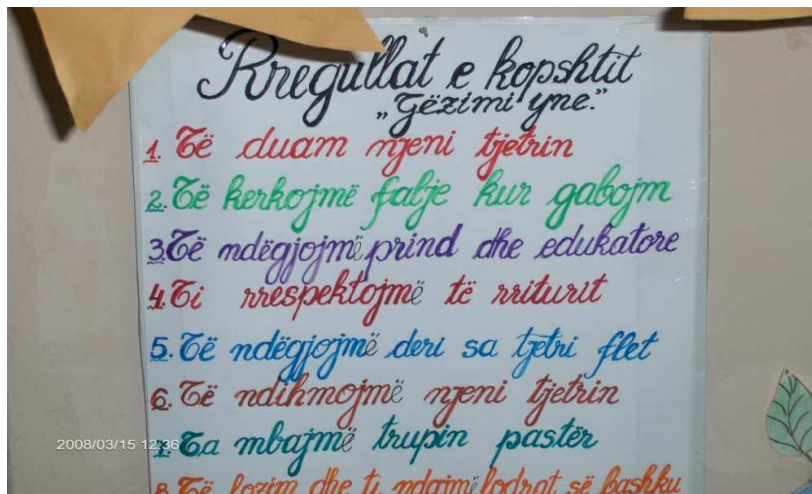 Rregullat e kopshtit
„Gëzimi yne.”
1. Të duam njeni tjetrin
2. Të kerkojmë falje kur gabojm
3. Të ndëgjojmë prind dhe edukatore
4. Ti rrespektojmë të rriturit
5. Të ndëgjojmë deri sa tjetri flet
6. Të ndihmojmë njeni tjetrin
7. Ta mbajmë trupin pastër
8. Të lozim dhe ti ndajmë lodrat së bashku
2008/03/15 12:36